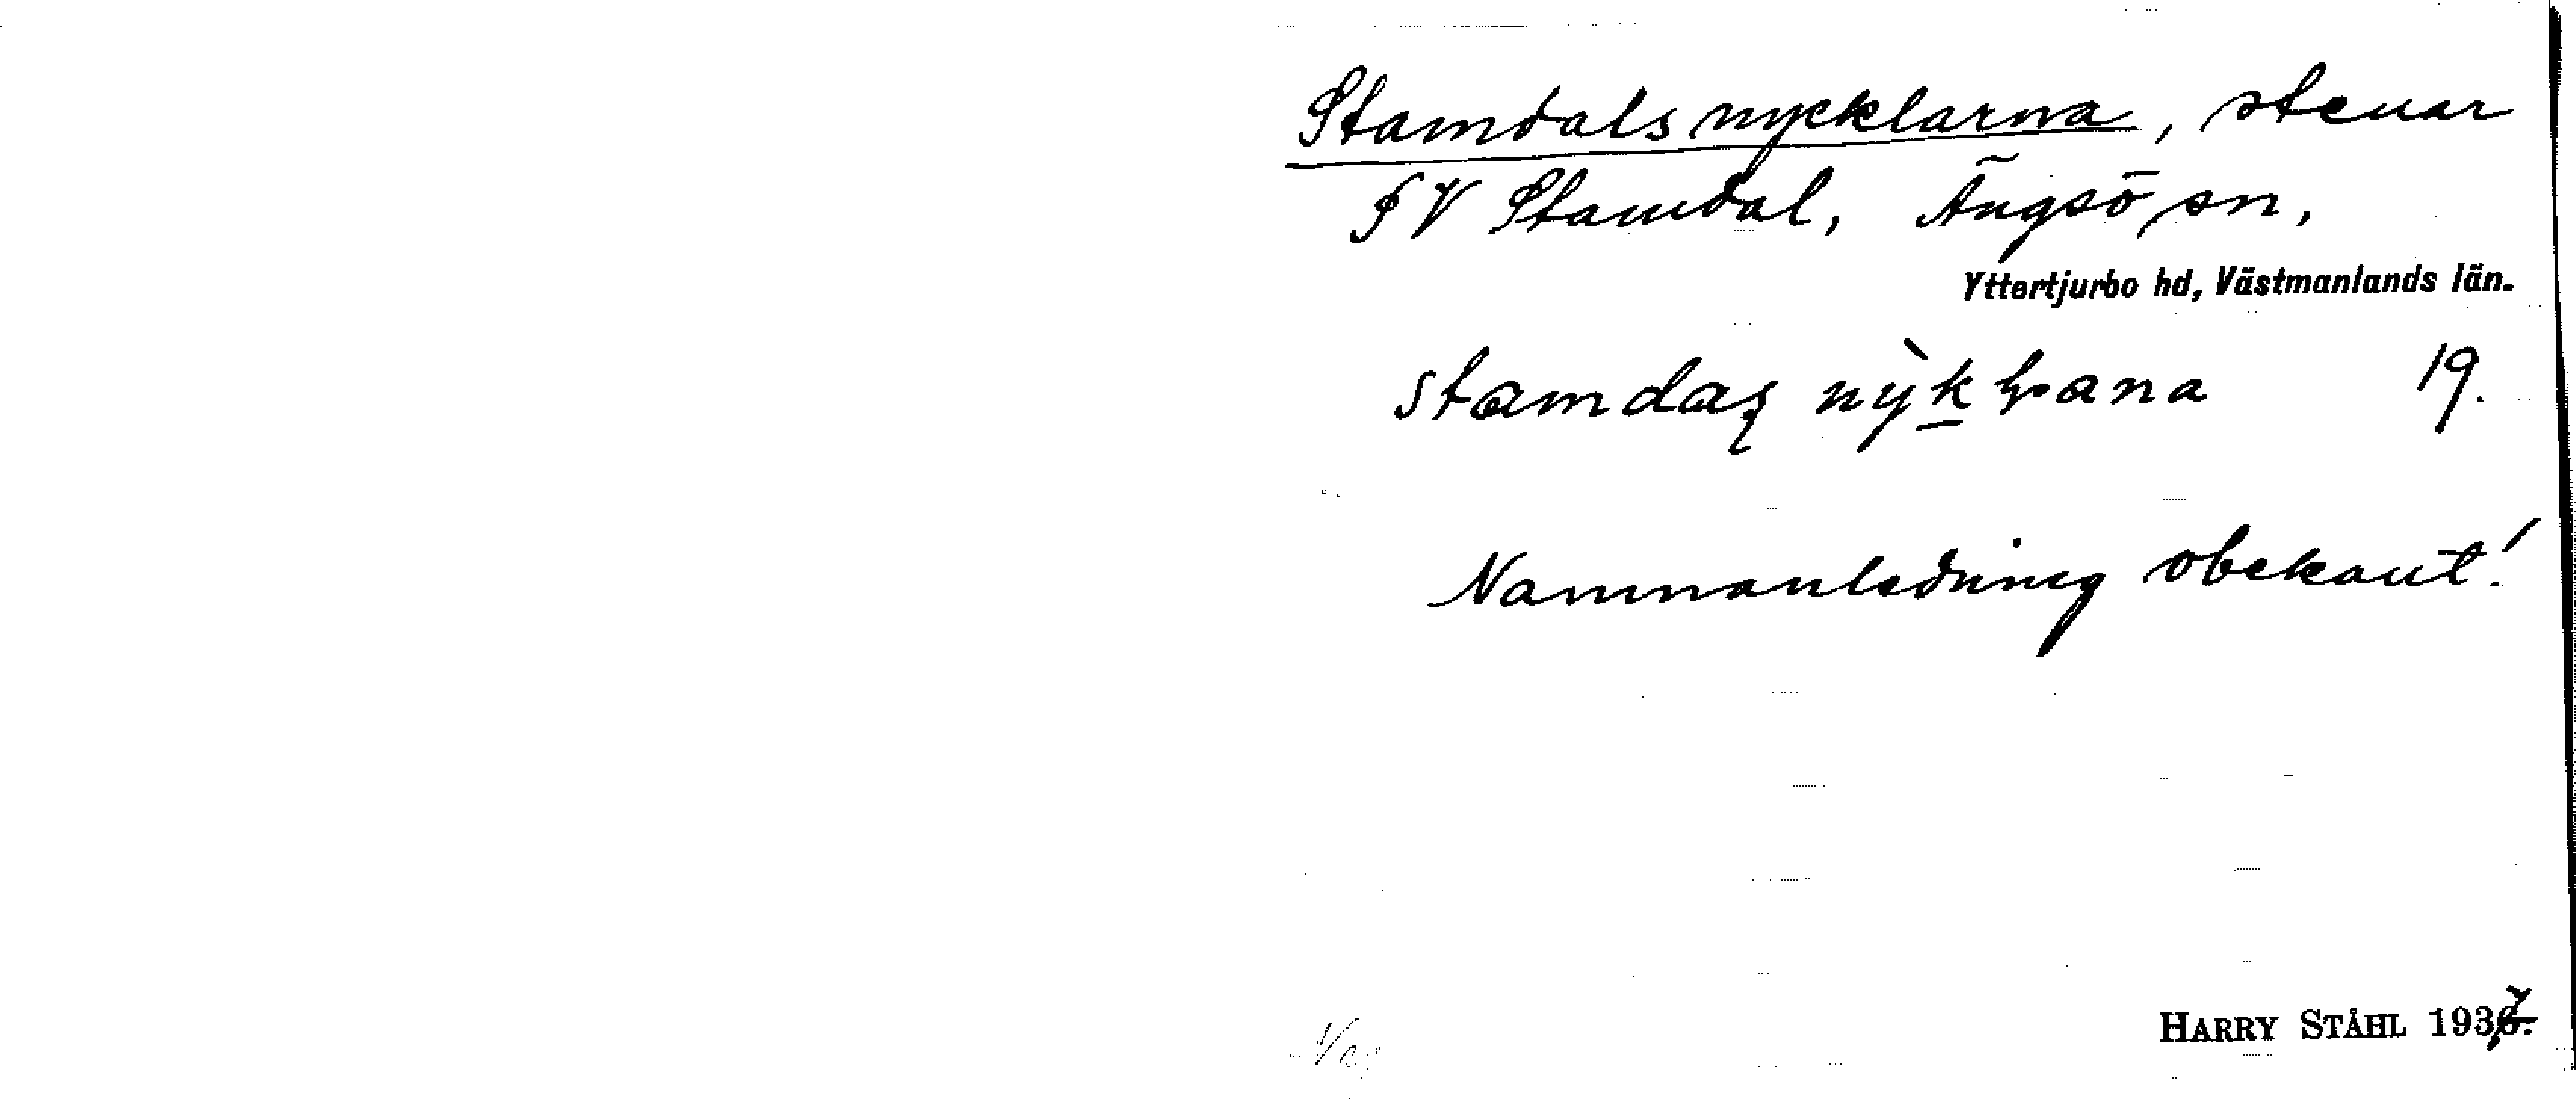 Stamdalsnycklarna, stenar
SV Stamdal, Ängsö sn,
Yttertjurbo hd, Västmanlands län.
19.
Namnanledning obekant!
HARRY STÅHL 1937